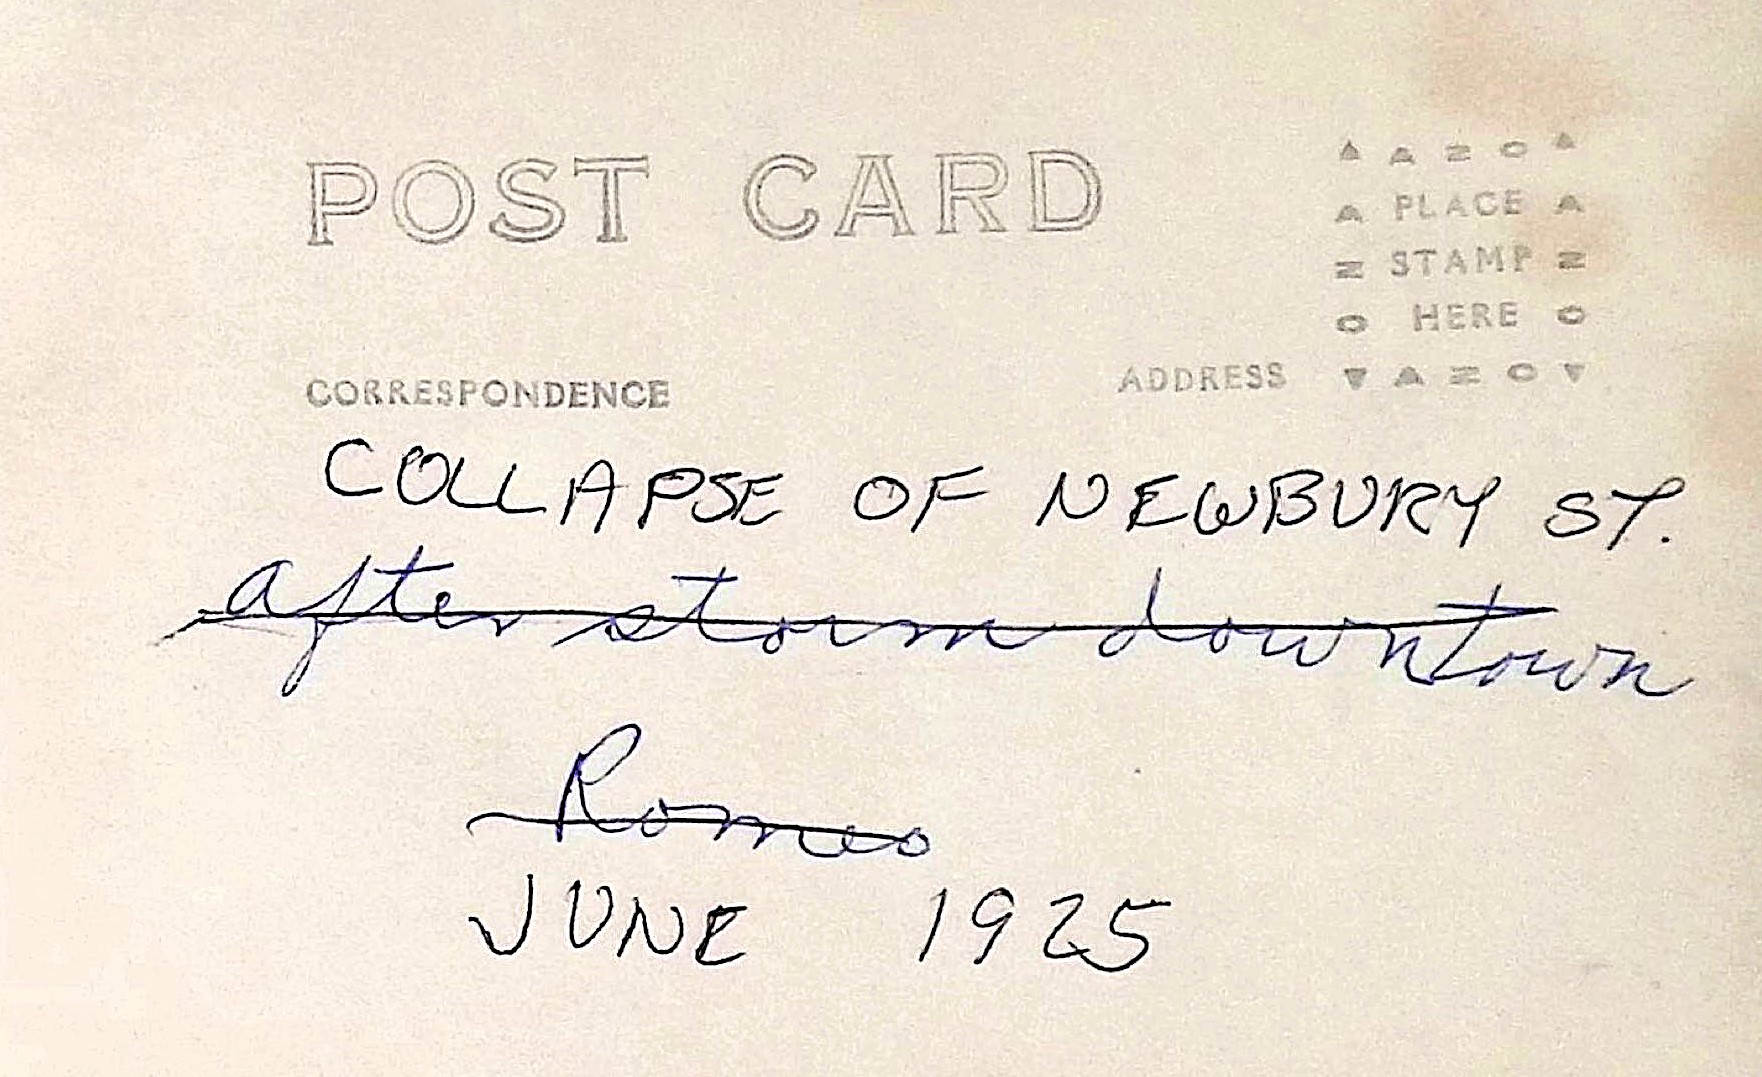 POST CARD
▲ A Z O ▲
A PLACE A
Z STAMP Z
O HERE O
▼ A Z O ▼
CORRESPONDENCE
ADDRESS
COLLAPSE OF NEWBURY ST.
after storm downtown
Romeo
JUNE 1925